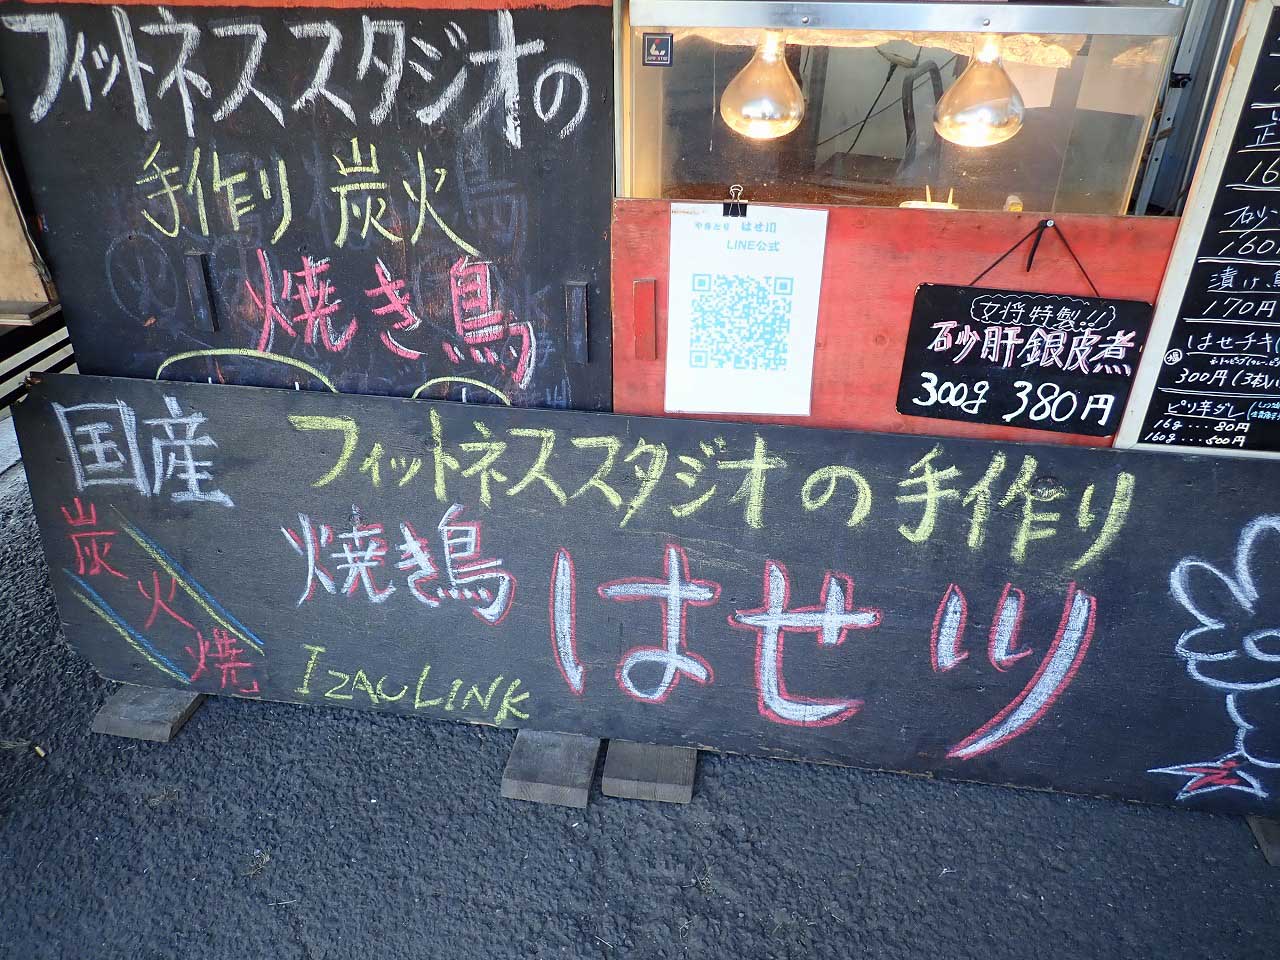 フィットネススタジオの
手作り 炭火
焼き鳥
やきとり はせ川
LINE公式
女将特製!!
砂肝銀皮煮
300g 380円
160円
漬け
170円
はせチキ
300円(3本い
ピリ辛ダレ
16g…80円
160g…500円
国産
炭火焼
フィットネススタジオの手作り
焼き鳥 はせ川
IZAC LINK